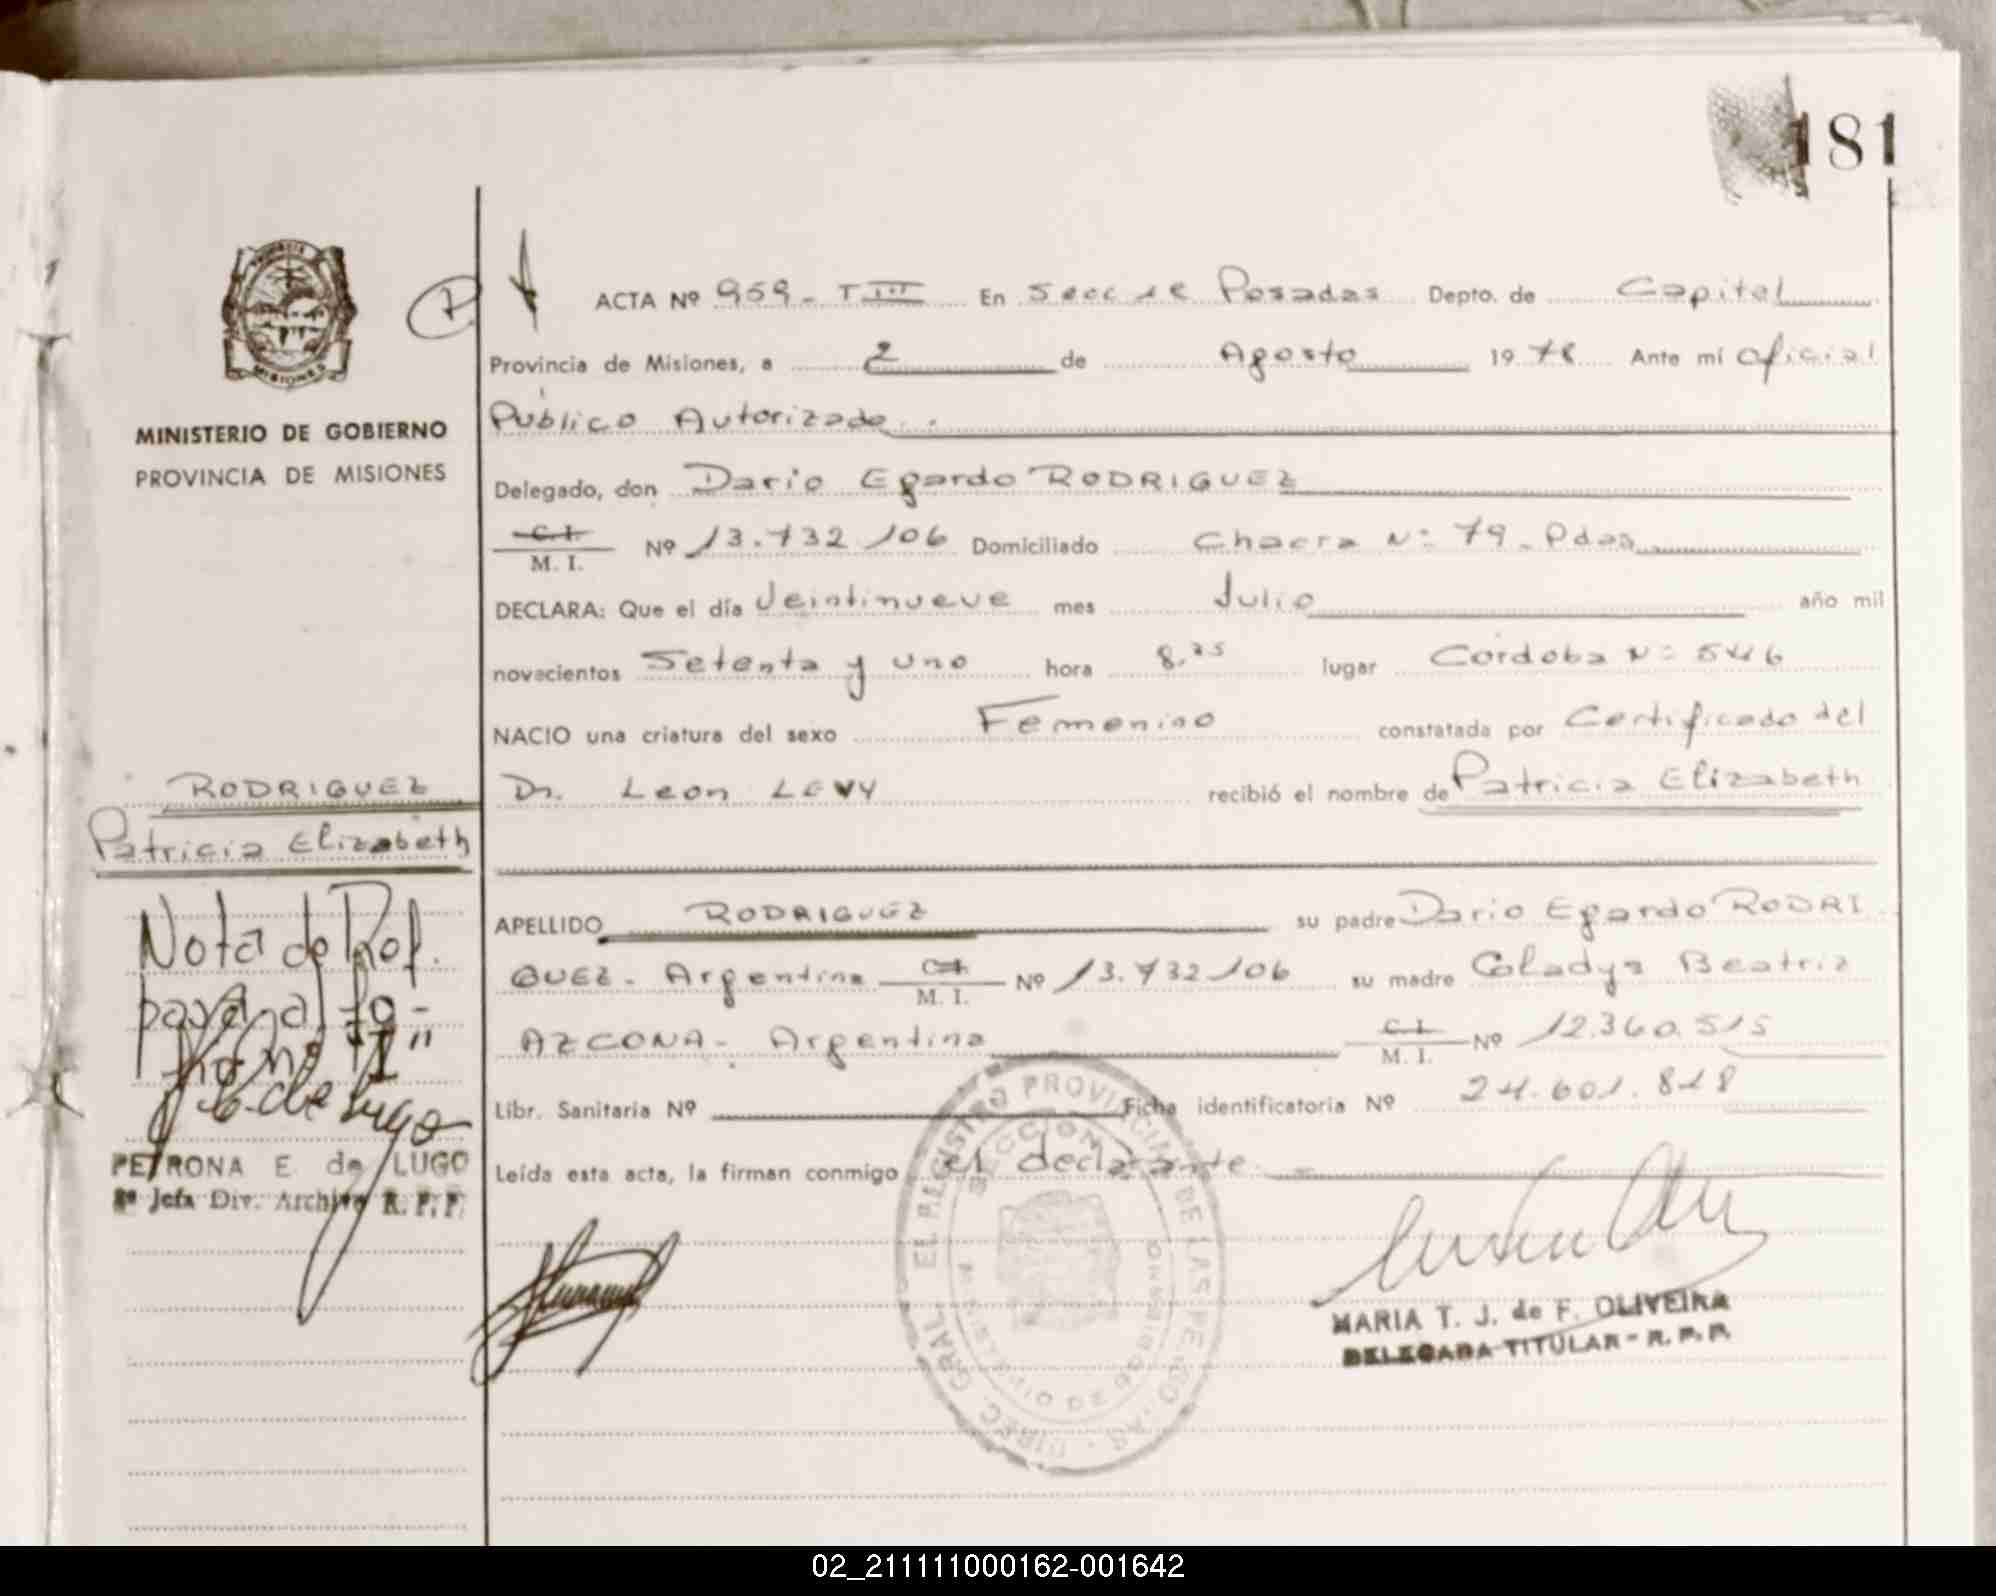 181
MISIONES
MINISTERIO DE GOBIERNO
PROVINCIA DE MISIONES
ACTA Nº 959 - T III En Secc 1e Posadas Depto. de Capital
Provincia de Misiones, a 2 de Agosto 1978 Ante mí Oficial
Público Autorizado.
Delegado, don Dario Egardo RODRIGUEZ
C. I.
M. I. Nº 13.732.106 Domiciliado Chacra Nº 79 - Pdas
DECLARA: Que el día Veintinueve mes Julio año mil
novecientos Setenta y uno hora 8,25 lugar Córdoba Nº 546
NACIO una criatura del sexo Femenino constatada por Certificado del
Dr. Leon LEVY recibió el nombre de Patricia Elizabeth
APELLIDO RODRIGUEZ su padre Dario Egardo RODRI
GUEZ - Argentina C.I. M. I. Nº 13.732.106 su madre Gladys Beatriz
AZCONA - Argentina C. I. M. I. Nº 12.360.515
Libr. Sanitaria Nº Ficha identificatoria Nº 24.601.828
Leída esta acta, la firman conmigo el declarante
RODRIGUEZ
Patricia Elizabeth
Nota de Ref.
pasa al fo-
lio Nº "I"
PETRONA E de LUGO
Jefa Div. Archivo R. P. P.
MARIA T. J. de F. OLIVEIRA
DELEGADA TITULAR - R. P. P.
DIREC. GRAL. EL REGISTRO PROVINCIAL DE LAS PERSONAS
SECCION
MISIONES
02_211111000162-001642